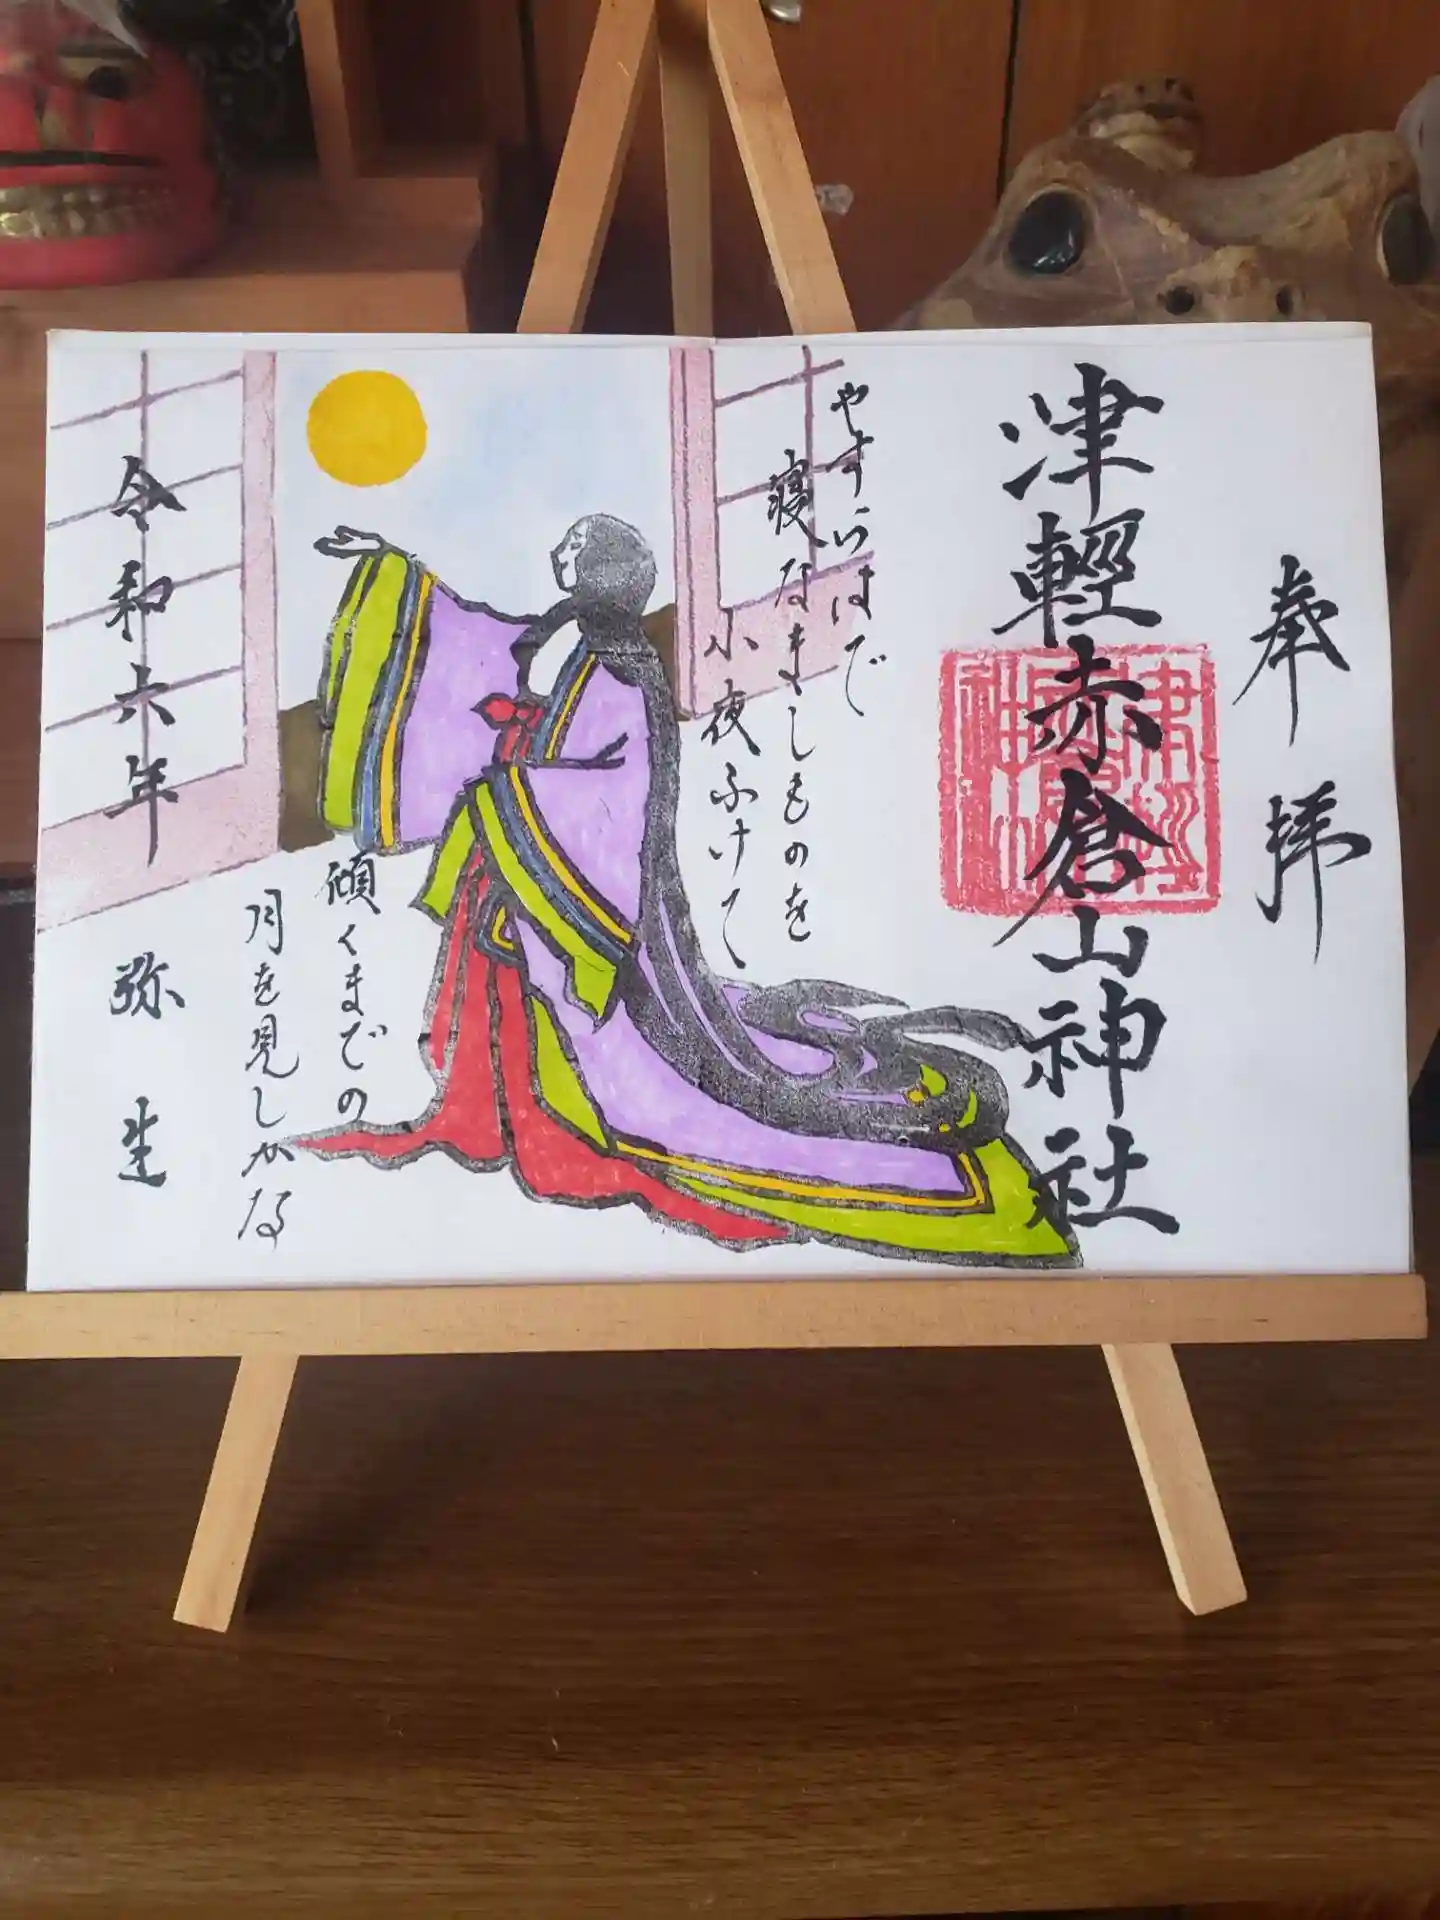 奉拝
津輕赤倉山神社
やすらはで
寝なましものを
小夜ふけて
傾くまでの
月を見しかな
令和六年
弥生